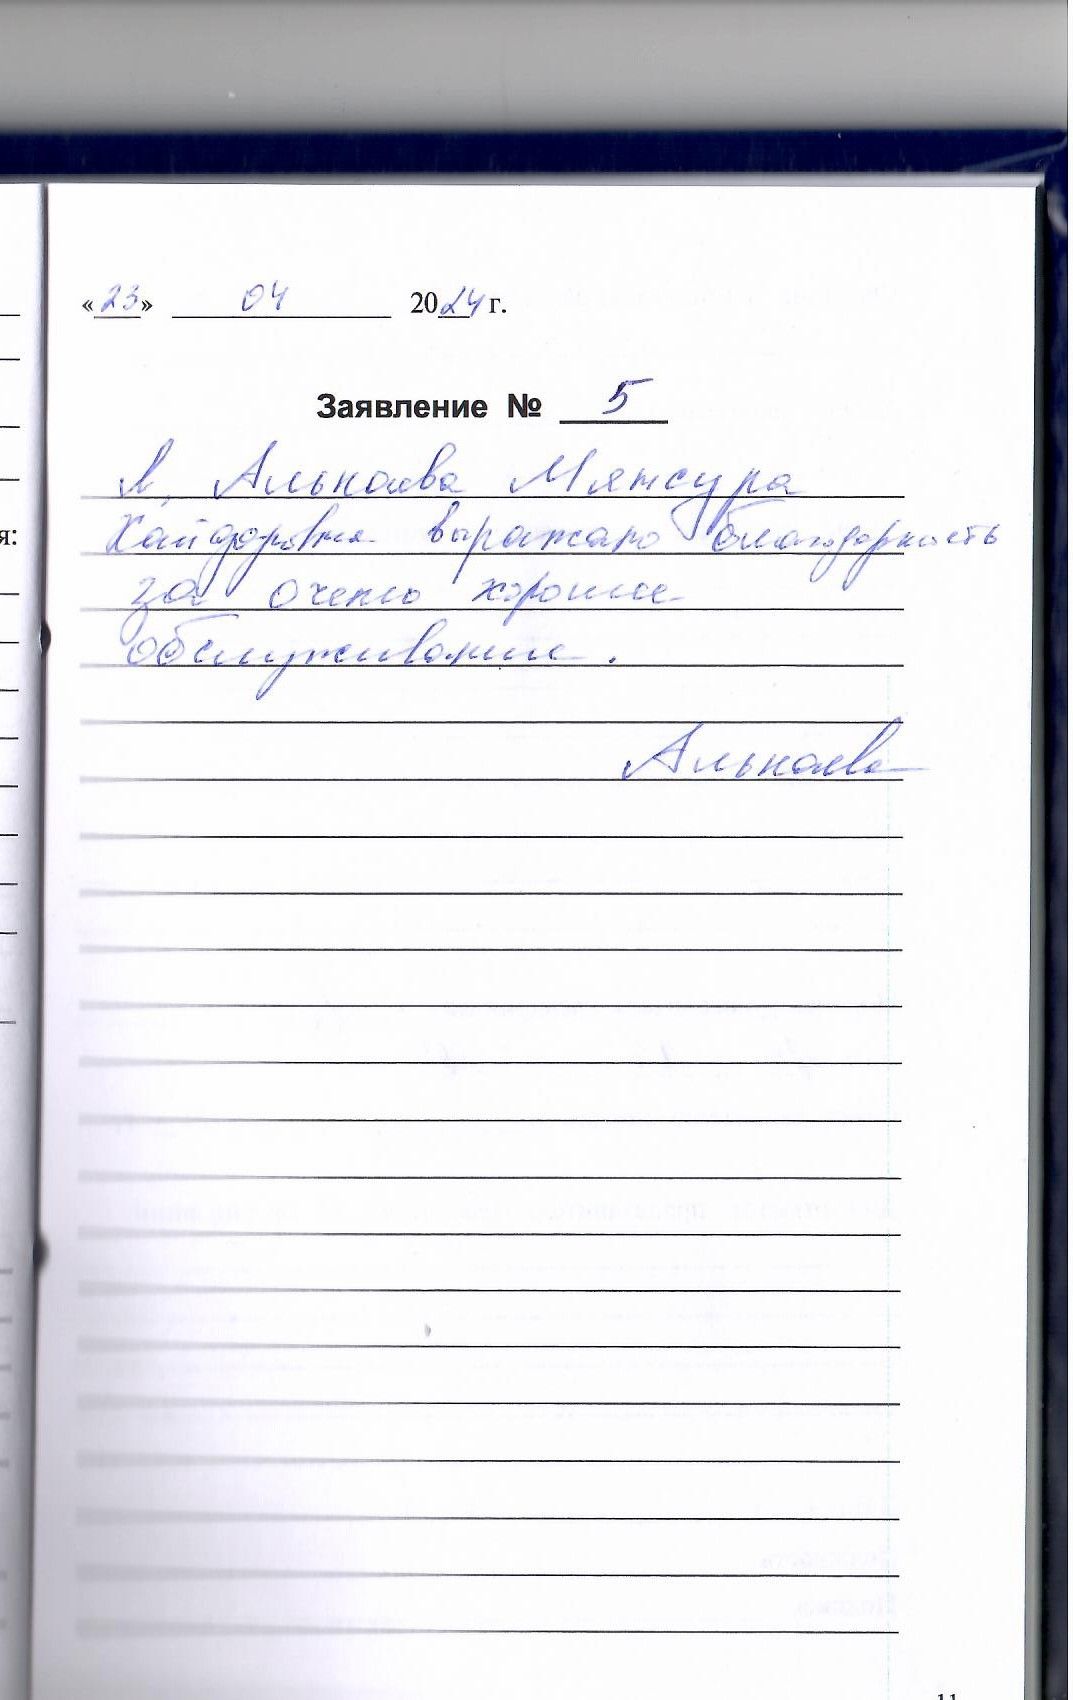 «23» 04 2024 г.
Заявление № 5
Я, Алькаева Мянсура
Хайдаровна выражаю благодарность
за очень хорошее
обслуживание.
Алькаева
я:
11